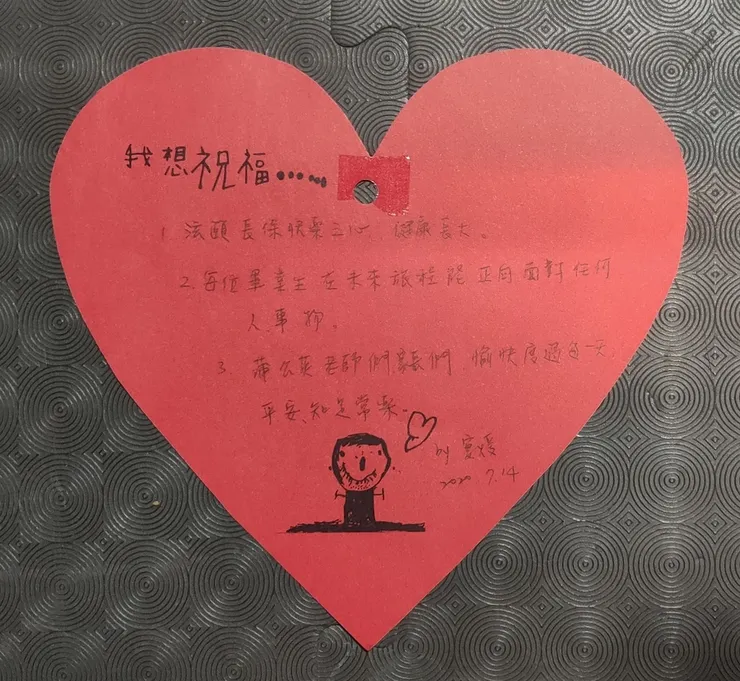 我想祝福....
1. 泫頤長保快樂之心、健康長大。
2. 每位畢業生在未來旅程能正向面對任何
人、事、物。
3. 蒲公英老師們、家長們，愉快度過每一天，
平安、知足常樂。
by 寶媛
2020 7.14